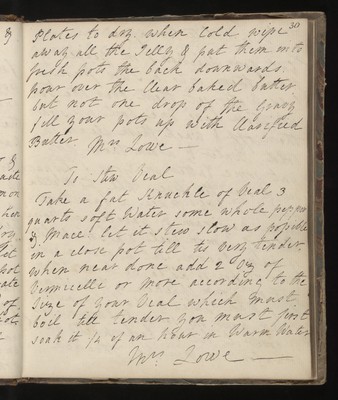 30
Plates to dry. when Cold wipe
away all the Jelly & put them into
fresh pots the back downwards.
pour over the Clear baked butter,
but not one drop of the Gravy
fill your pots up with Clarified
Butter Mrs Lowe —
To Stew Veal
Take a fat Knuckle of Veal 3
quarts soft Water some whole pepper
& Mace. let it stew slow as possible
in a close pot till tis very tender,
when near done add 2 Oz of
Vermicelle or more according to the
Size of your Veal which must
boil till tender you must first
soak it 1/4 of an hour in Warm Water
Mrs Lowe —